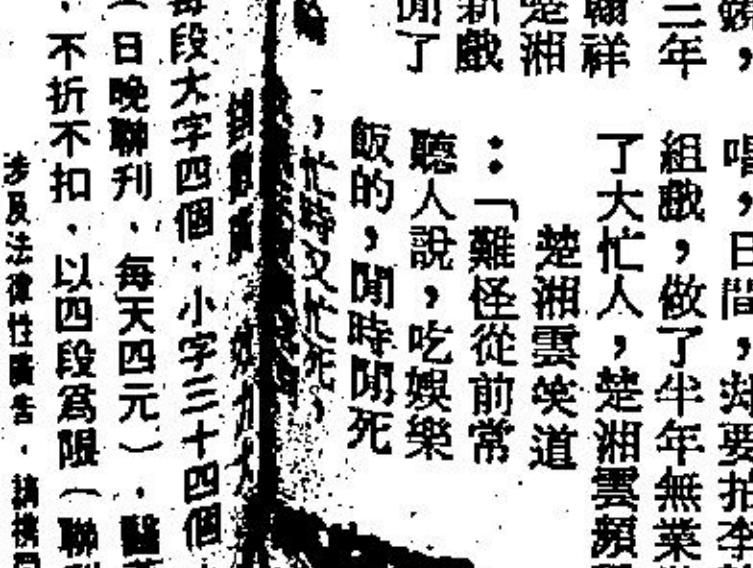 三年
翰祥
楚湘
新戲
閒了
唱，日間，却要拍李
組戲，做了半年無業
了大忙人，楚湘雲頻
楚湘雲笑道
：「難怪從前常
聽人說，吃娛樂
飯的，閒時閒死
，忙時又忙死，
每段大字四個．小字三十四個
（日晚聯刊．每天四元）．醫
．不折不扣．以四段爲限（聯
涉及法律性廣告．請携